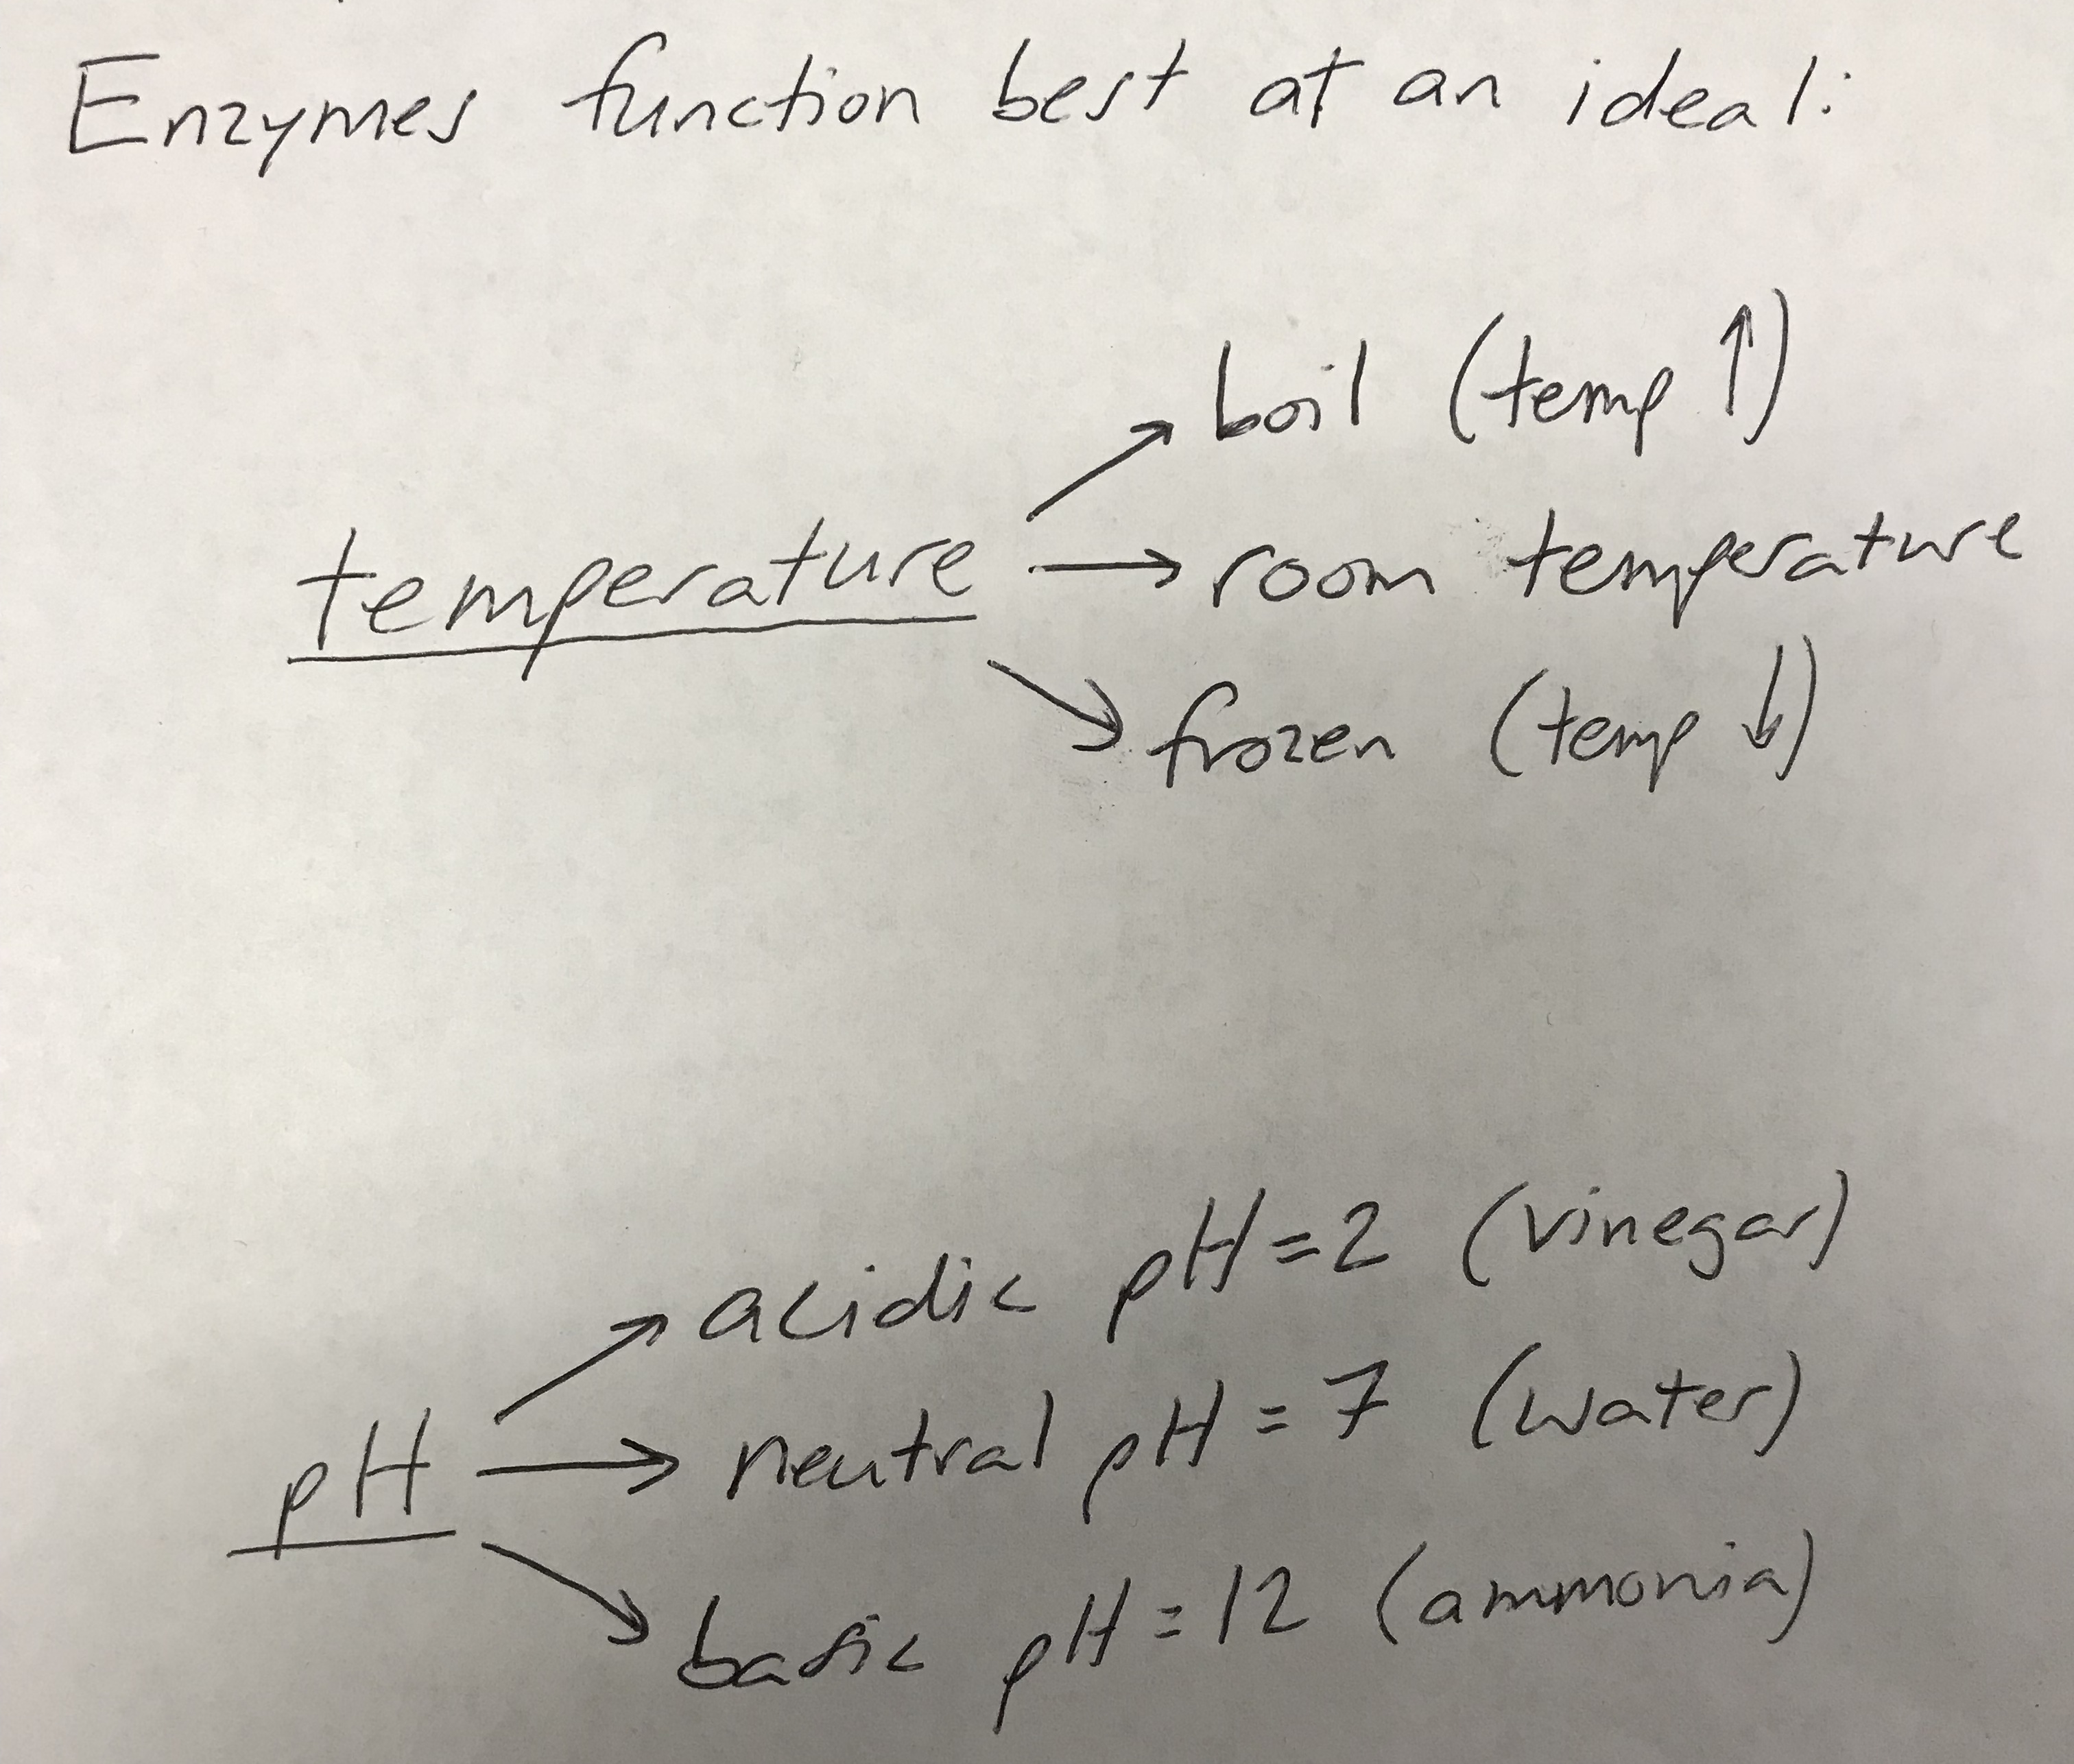 Enzymes function best at an ideal:
boil (temp ↑)
temperature → room temperature
frozen (temp ↓)
acidic pH=2 (vinegar)
pH → neutral pH = 7 (water)
basic pH = 12 (ammonia)